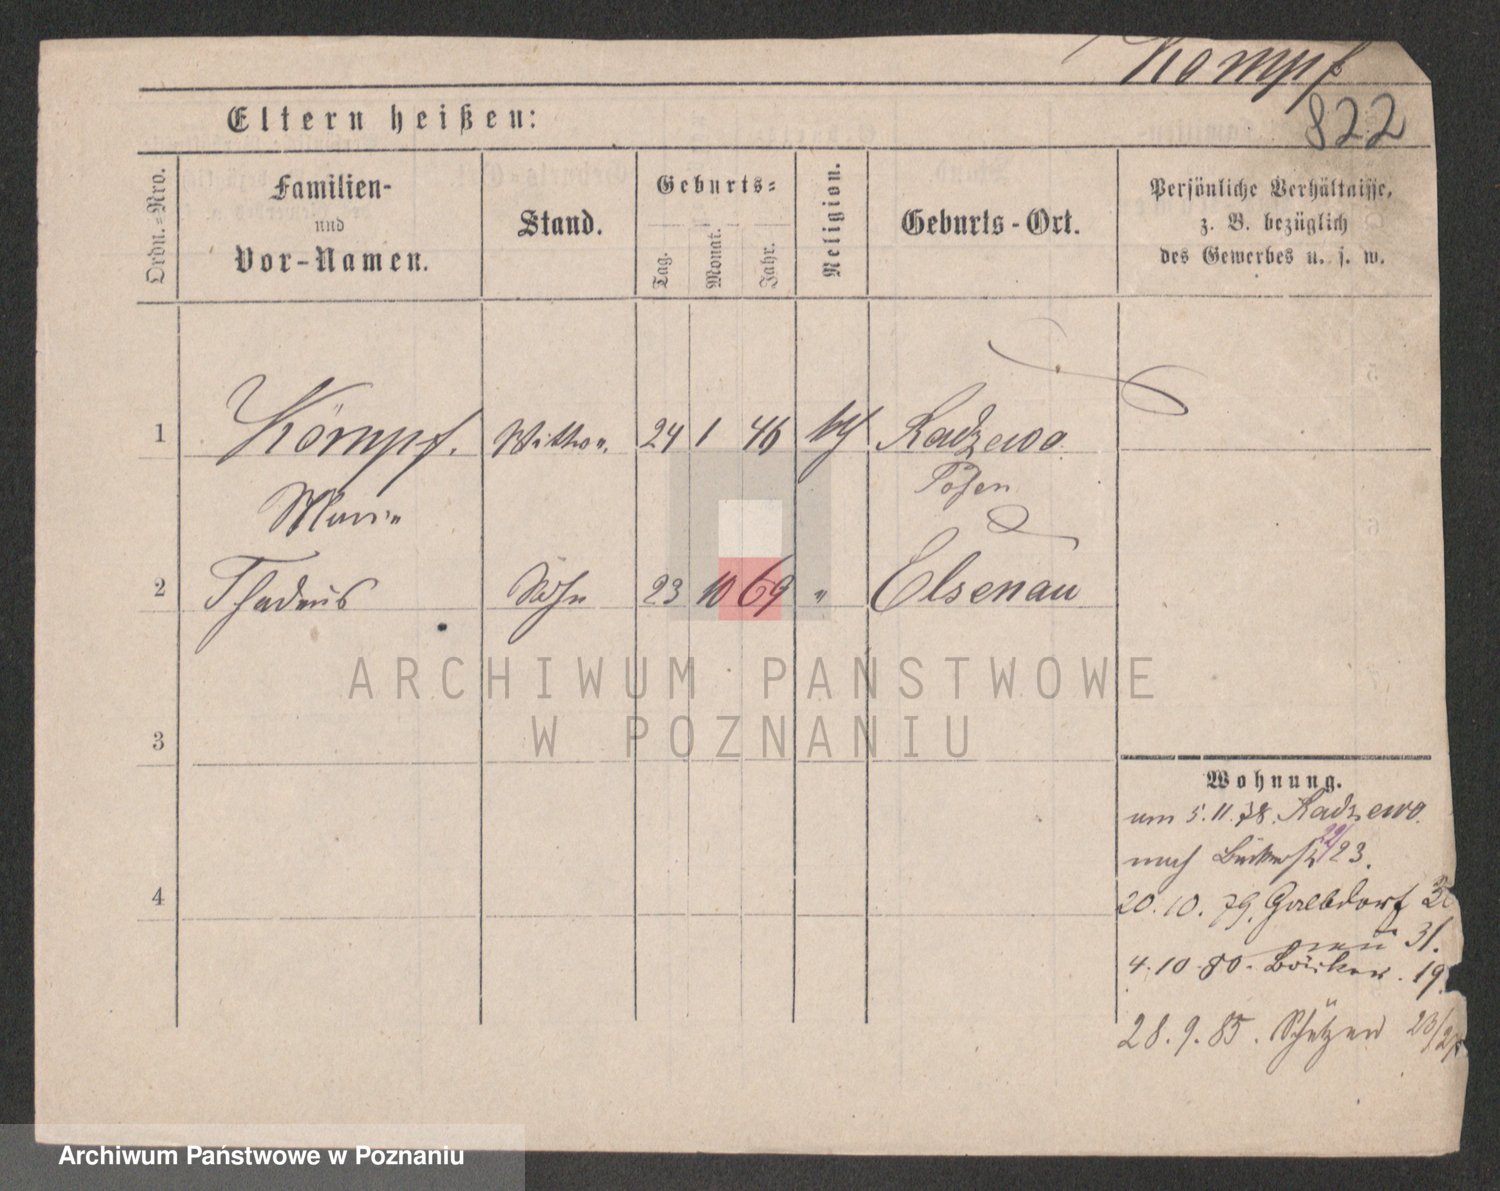 Kompf
822
Eltern heißen:
Ordn.-Nro.
Familien-
und
Vor-Namen.
Stand.
Geburts-
Tag.
Monat.
Jahr.
Religion.
Geburts-Ort.
Persönliche Verhältnisse,
z. B. bezüglich
des Gewerbes u. s. w.
1 Kömpf. 24 1 46 Radzewo
Posen
Marie
2 Thadeus Sohn 23 10 69 " Elsenau
3
4
ARCHIWUM PAŃSTWOWE
W POZNANIU
Wohnung.
5.11.78. Radzewo.
nach 23.
20.10.79.
31.
4.10.80. 19
28.9.85. Schützen 23/24
Archiwum Państwowe w Poznaniu